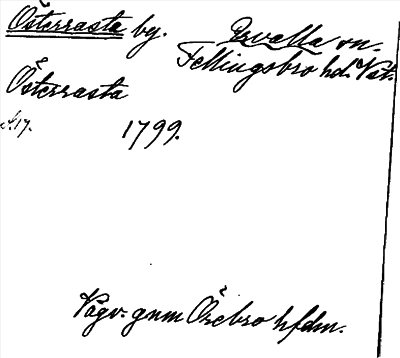 Österrasta by. Ervalla sn.
Fellingsbro hd. Vstm.
Österrasta
s. 17. 1799.
Vägv. gnm Örebro hfdm.